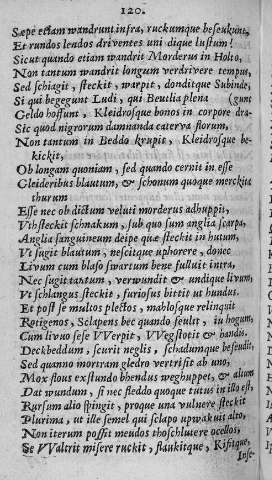 120.
Sæpe etiam wandrunt infra, ruckumque beseukunt,
Et rundos leados driventes uni dique lustum!
Sicut quando etiam wandrit Morderus in Holto,
Non tantum wandrit longum verdrivere tempus,
Sed schiagit, steckit, warpit, donditque Subinde,
Si qui begegunt Ludi, qui Beutlia plena (gunt
Geldo hoffunt, Kleidrosque bonos in corpore dra-
Sic quod nigrorum damnanda caterva florum,
Non tantum in Beddo krupit, Kleidrosque be-
kickit,
Ob longam quoniam, sed quando cernit in esse
Gleideribus blautum, & schonum quoque merckita
thurum
Esse nec ob dictum veluti morderus adhuppit,
Vthsteckit schnakum, sub quo sum anglia scarpa,
Anglia sanguineum deipe quæ steckit in hutam,
Vt sugit blautum, nescitque uphorere, donec
Livum cum blaso swartum bene fulluit intra,
Nec sugit tantum, verwundit & undique livum,
Vt schlangus steckit, furiosus bittit ut hundus.
Et post se multos plectos, mahlosque relinquit
Rotigenos, Sclapens bec quando seult, iu hogum,
Cum livuo sese VVerpit, VVegstotit & handis.
Deckbeddum, scurit neglis, schadumque beseudit,
Sed quanno morram gledro vertrisit ab uno,
Mox flous exstundo bhendus weghuppet, & alium
Dat wundum, si nec steddo quoque tutus in illo est,
Rursum alio springit, proque una vulnere steckit
Plurima, ut ille semel qui sclapo upwakuit alto,
Non iterum possit meudos thoschluiere ocellos,
Se VValtrit misere ruckit, slankitque, Kifitque,
Inse-